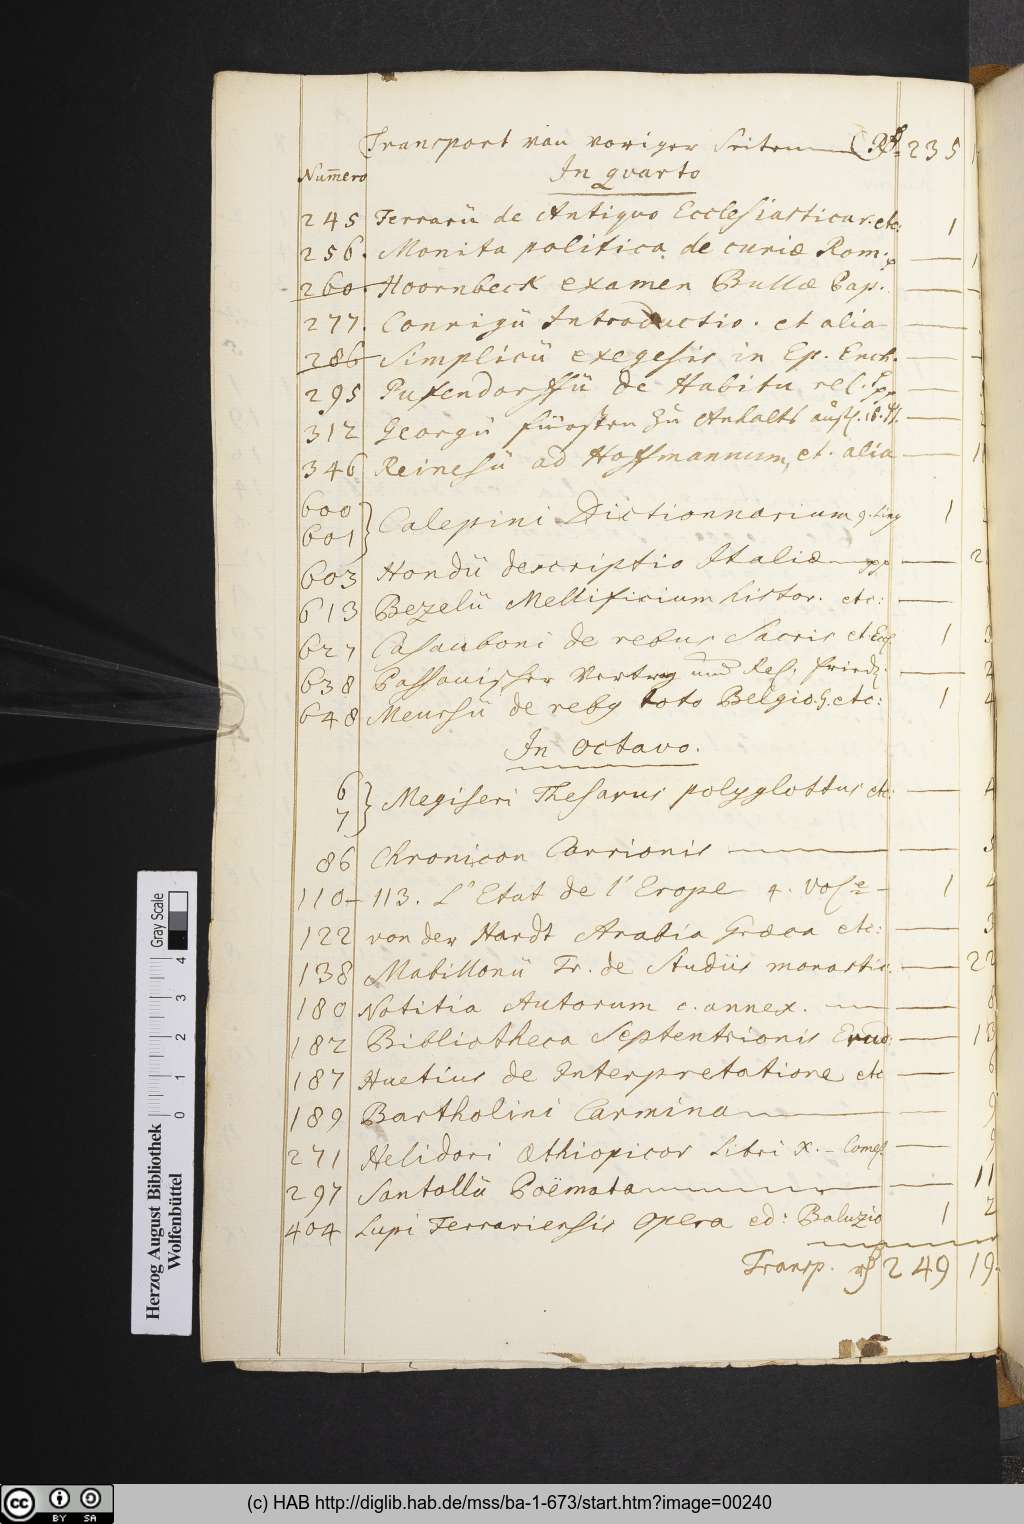 Transport von voriger Seiten Rth 235
Num̅ero In quarto
245 Ferrarii de Antiquo Ecclesiasticar. etc: 1
256. Monita politica de curiæ Rom:
260. Hoornbeck examen Bullæ Pap.
277. Conrigii Introductio. et alia
286 Simplicii exegesis in Ep. Ench.
295 Pufendorffii de Habitu rel.
312 Georgii fürsten Zu Anhalts
346 Reinesii ad Hoffmannum, et. alia
600
601 Calepini Dictionnarium 9. ling 1
603 Hondii descriptio Italiæ 2
613 Bezelii Mellificium histor. etc:
627 Casauboni de rebus Sacris et Eccl 1 3
638 Passauischer Vertrag und Rel. friedᷓ. 2
648 Meursii de rebq toto Belgio. G. etc: 1 4
In octavo.
6
7 Megiseri Thesarus polyglottus etc: 4
86 Chronicon Carrionis
110–113. L'Etat de l'Erope 4. Vol 1 4
122 von der Hardt Arabia Græca etc: 3
138 Mabillonii Tr. de Studiis monastic. 22
180 Notitia Autorum c. annex. 8
182 Bibliotheca Septentrionis Erud: 13
187 Huetius de Interpretatione etc 6
189 Bartholini Carmina 9
271 Helidori Æthiopicor Libri X. 9
297 Santollii Poëmata 11
404 Lupi Ferrariensis opera ed: Baluzio 1 2
Transp. rth 249 19.
Herzog August Bibliothek
Wolfenbüttel
0 1 2 3 4
Gray Scale
cc BY SA
(c) HAB http://diglib.hab.de/mss/ba-1-673/start.htm?image=00240